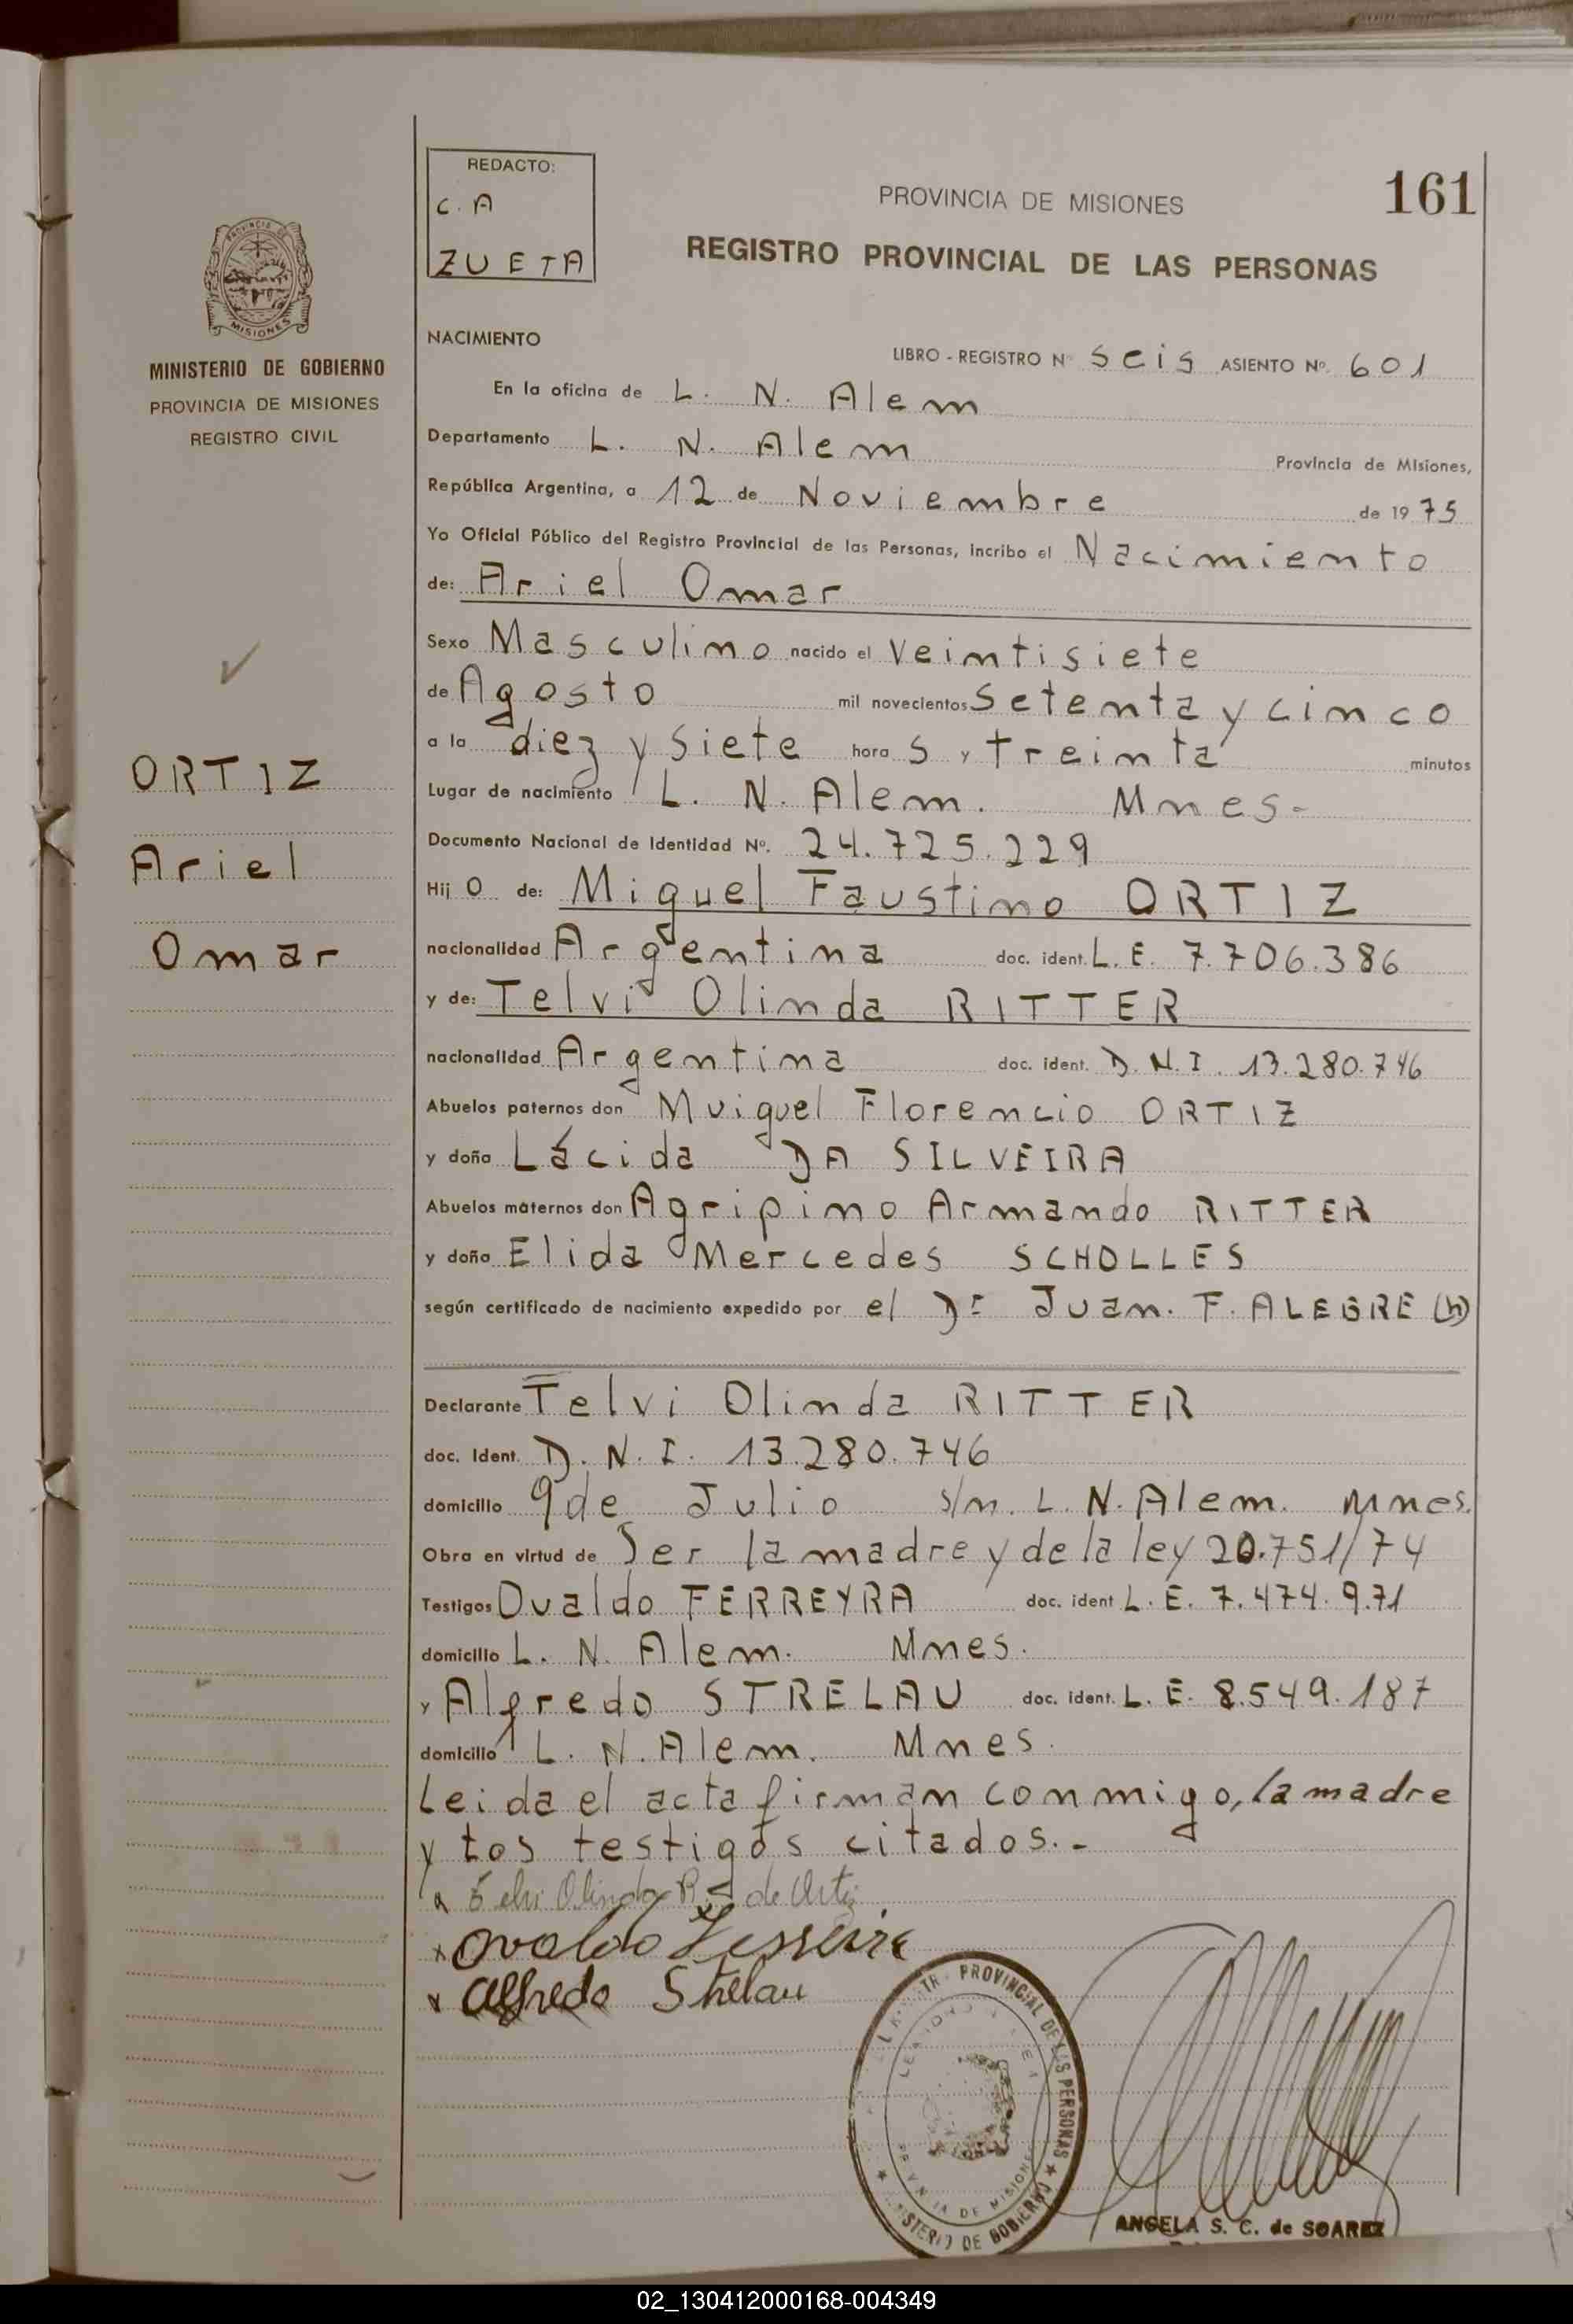 REDACTO:
C. A
ZUETA
PROVINCIA DE MISIONES
161
REGISTRO PROVINCIAL DE LAS PERSONAS
PROVINCIA DE
MISIONES
MINISTERIO DE GOBIERNO
PROVINCIA DE MISIONES
REGISTRO CIVIL
ORTIZ
Ariel
Omar
NACIMIENTO
LIBRO - REGISTRO Nº Seis ASIENTO Nº. 601
En la oficina de L. N. Alem
Departamento L. N. Alem Provincia de Misiones,
República Argentina, a 12 de Noviembre de 1975
Yo Oficial Público del Registro Provincial de las Personas, incribo el Nacimiento
de: Ariel Omar
Sexo Masculino nacido el Veintisiete
de Agosto mil novecientos Setenta y cinco
a la diez y siete hora s y treinta minutos
Lugar de nacimiento L. N. Alem. Mnes-
Documento Nacional de Identidad Nº. 24.725.229
Hij o de: Miguel Faustino ORTIZ
nacionalidad Argentina doc. ident. L. E. 7.706.386
y de: Telvi Olinda RITTER
nacionalidad Argentina doc. ident. D. N. I. 13.280.746
Abuelos paternos don Muiguel Florencio ORTIZ
y doña Lácida DA SILVEIRA
Abuelos maternos don Agripino Armando RITTER
y doña Elida Mercedes SCHOLLES
según certificado de nacimiento expedido por el Dr Juan. F. ALEGRE (h)
Declarante Telvi Olinda RITTER
doc. Ident. D. N. I. 13.280.746
domicilio 9 de Julio s/n. L. N. Alem. Mnes.
Obra en virtud de Ser la madre y de la ley 20.751/74
Testigos Ovaldo FERREYRA doc. ident L. E. 7.474.971
domicilio L. N. Alem. Mnes.
y Alfredo STRELAU doc. ident. L. E. 8.549.187
domicilio L. N. Alem. Mnes.
Leida el acta firman conmigo, la madre
y los testigos citados.-
Telvi Olinda R. de Ortiz
x Ovaldo Ferreira
x Alfredo Strelau
PROVINCIAL DE LAS PERSONAS
MINISTERIO DE GOBIERNO
DE MISIONES
ANGELA S. C. de SOAREZ
02_130412000168-004349